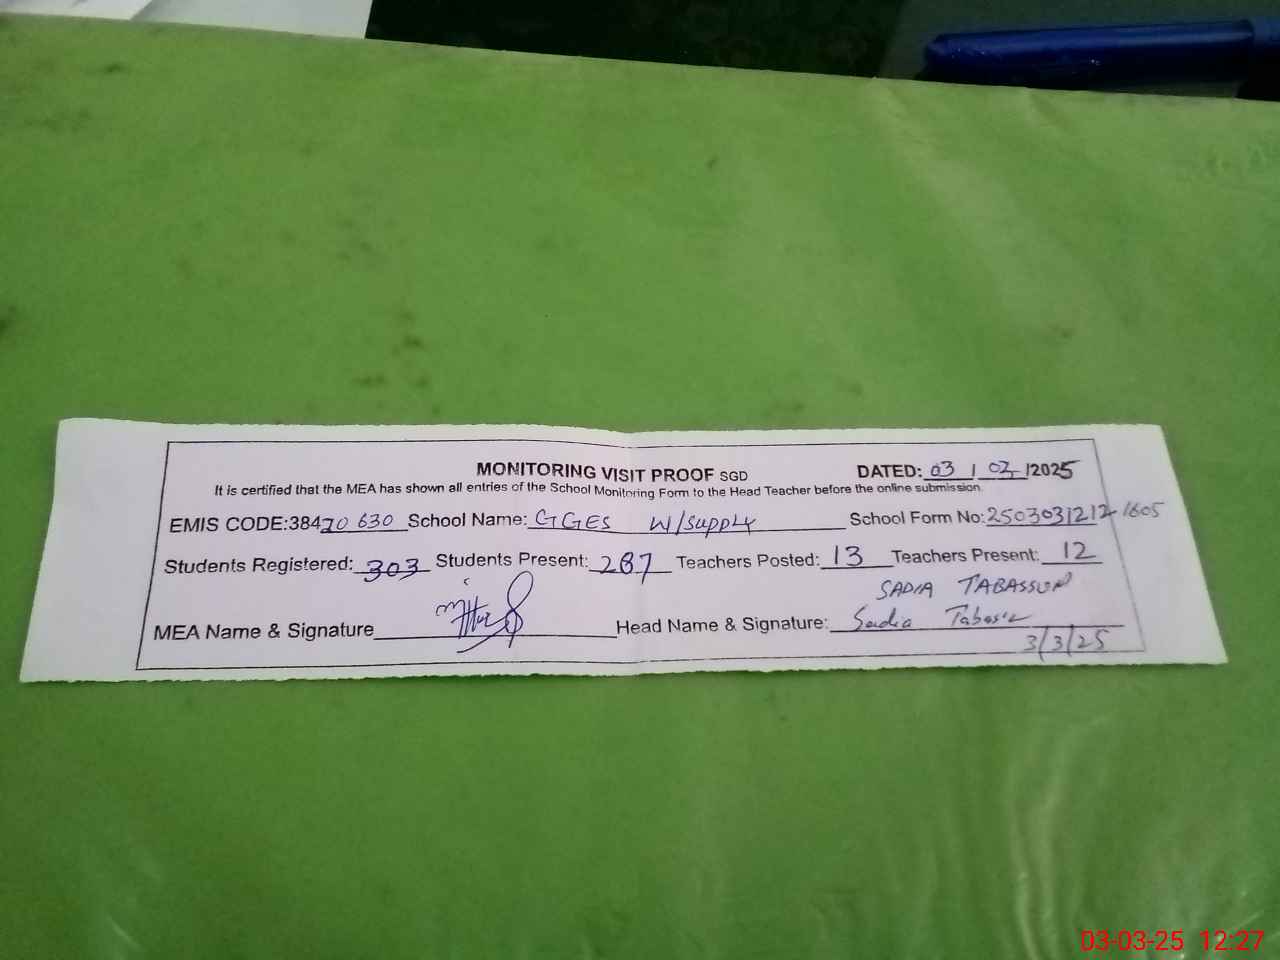 MONITORING VISIT PROOF SGD DATED: 03 / 03 /2025
It is certified that the MEA has shown all entries of the School Monitoring Form to the Head Teacher before the online submission.
EMIS CODE:38420630 School Name: GGES W/SUPPLY School Form No: 2503031212-1605
Students Registered: 303 Students Present: 287 Teachers Posted: 13 Teachers Present: 12
SADIA TABASSUM
MEA Name & Signature Head Name & Signature: Sadia
3/3/25
03-03-25 12:27